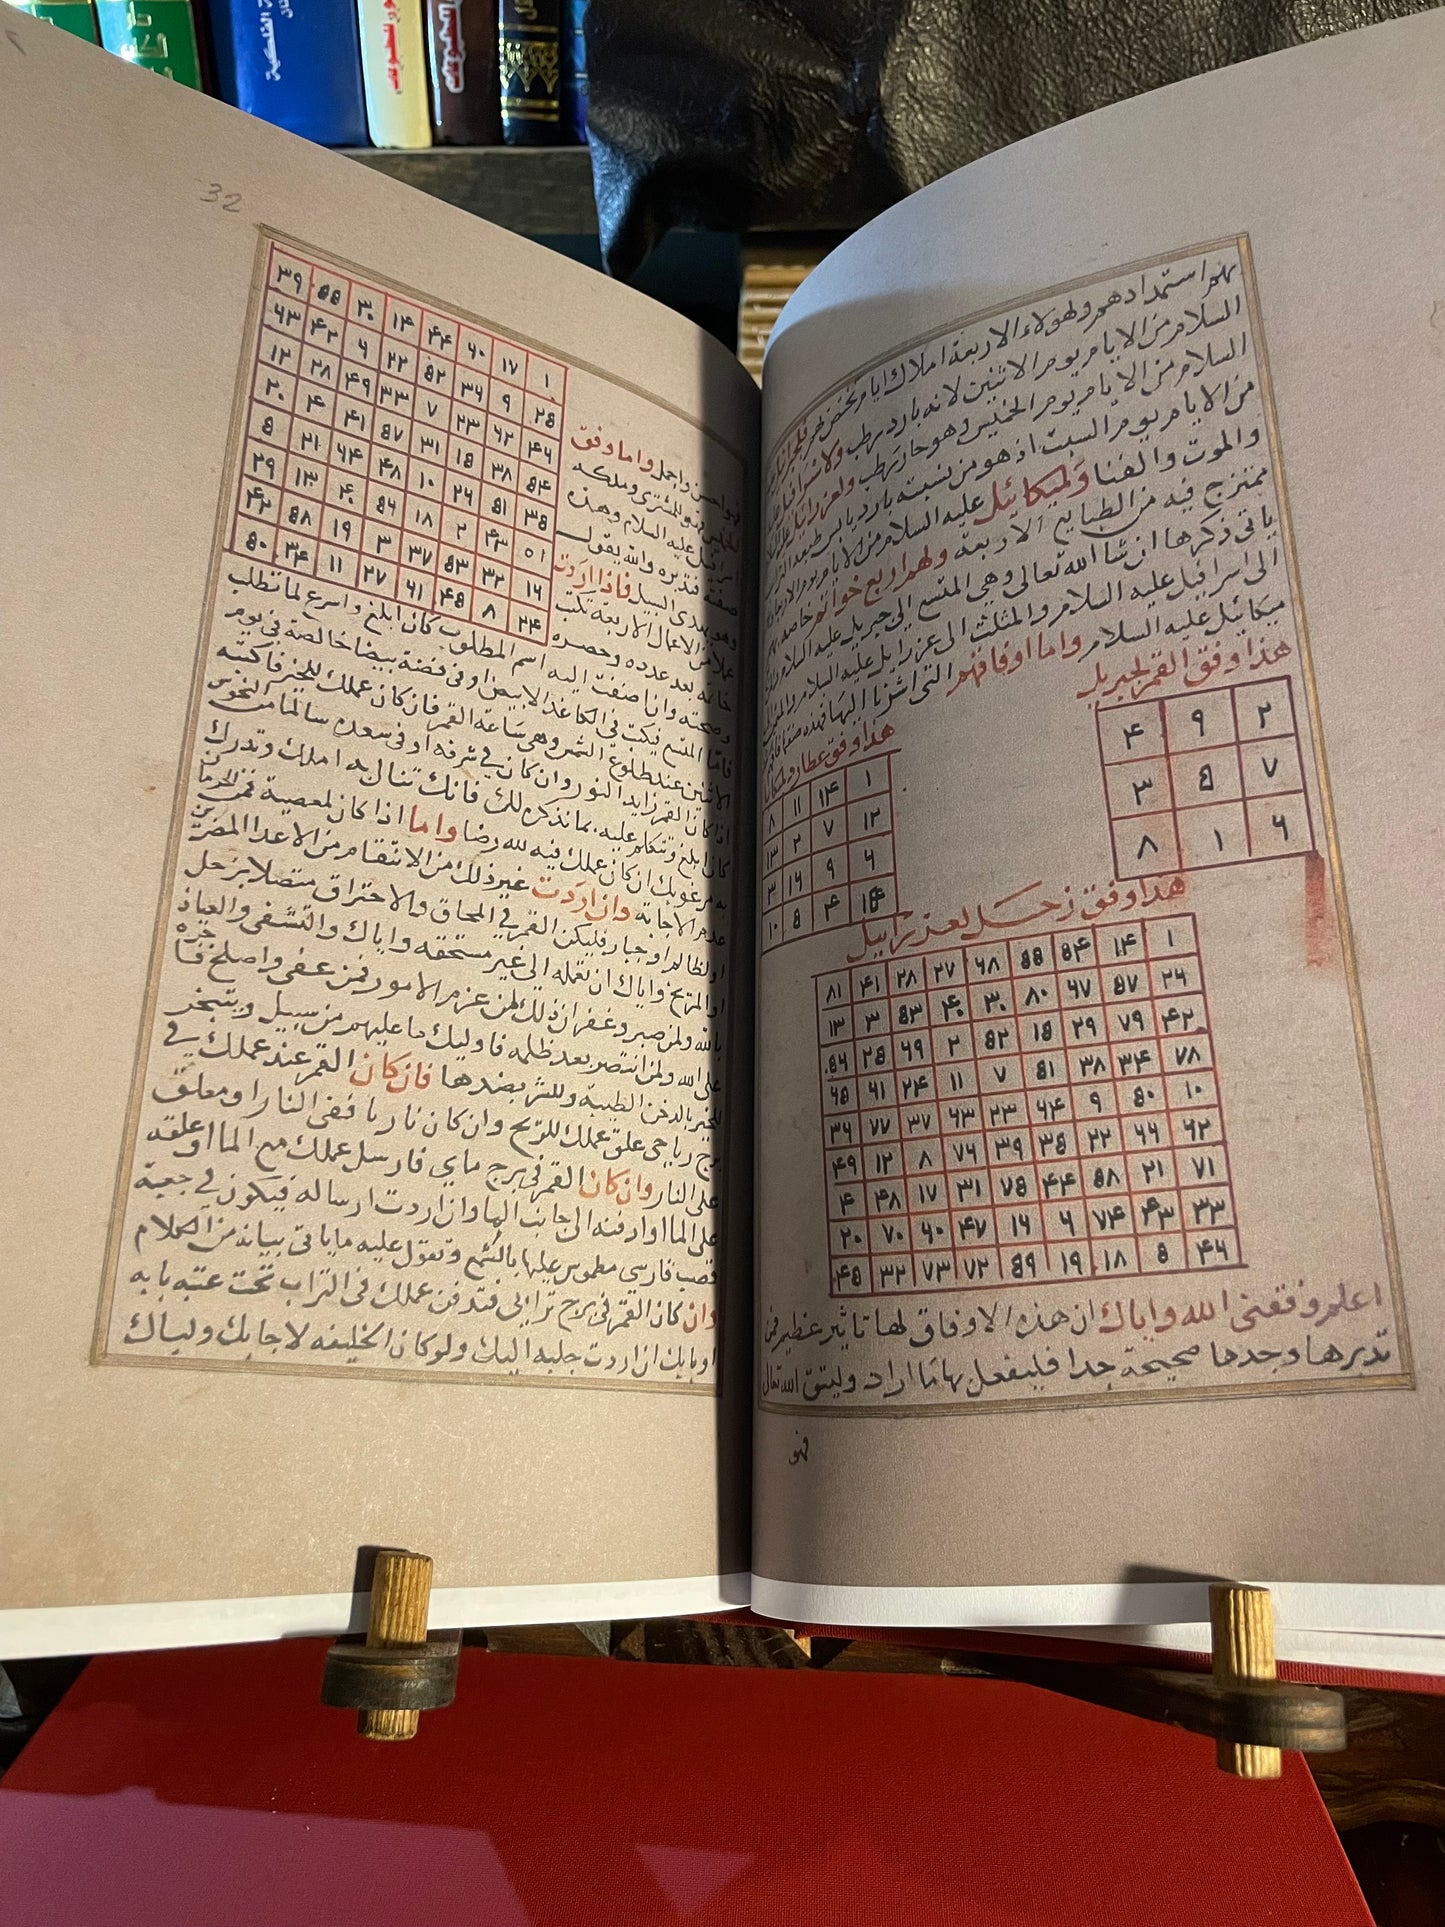 بهم استمدادهم ولهولاء الاربعة املاك ايام تختص بهم فلجبرائيل
السلام من الايام يوم الاثنين لانه بارد رطب ولاسرافيل عليه
السلام من الايام يوم الخميس وهو حار رطب ولعزرائيل عليه
من الايام يوم السبت اذ هو من نسبته بارد يابس طبعه التراب
والموت والفنا ولميكائيل عليه السلام من الايام يوم الاربعا
ممتزج فيه من الطبايع الاربعة ولهم اربع خواتم خاصة بهم
ياتي ذكرها ان شا الله تعالى وهي المتسع الى جبريل عليه السلام
الى اسرافيل عليه السلام والمثلث الى عزرايل عليه السلام
ميكائيل عليه السلام واما اوفاقهم التي اشرنا اليها فهذه صفتها
هذا وفق القمر لجبريل
٢ ٩ ٤
٧ ٥ ٣
٦ ١ ٨
هذا وفق عطارد لميكائيل
١ ١٤ ١١ ٨
١٢ ٧ ٢ ١٣
٦ ٩ ١٦ ٣
١٥ ٤ ٥ ١٠
هذا وفق زحل لعزرايل
١ ١٤ ٥٤ ٥٥ ٦٨ ٢٧ ٢٨ ٤١ ٨١
٢٦ ٥٧ ٦٧ ٨٠ ٣٠ ٤٠ ٥٣ ٣ ١٣
٤٢ ٧٩ ٢٩ ١٥ ٥٢ ٢ ٦٩ ٢٥ ٥٤
٧٨ ٣٤ ٣٨ ٥١ ٧ ١١ ٢٤ ٦١ ٦٥
١٠ ٥٠ ٩ ٦٤ ٢٣ ٦٣ ٣٧ ٧٧ ٣٦
٦٢ ٦٦ ٢٢ ٣٥ ٣٩ ٧٦ ٨ ١٢ ٤٩
٧١ ٢١ ٥٨ ٤٤ ٧٥ ٣١ ١٧ ٤٨ ٤
٣٣ ٤٣ ٧٤ ٦ ١٦ ٤٧ ٦٠ ٧٠ ٢٠
٤٦ ٥ ١٨ ١٩ ٥٩ ٧٢ ٧٣ ٣٢ ٤٥
اعلم وفقنى الله واياك ان هذه الاوفاق لها تاثير عظيم فمن
تدبرها وجدها صحيحة جدا فليفعل بها ما اراد وليتق الله تعالى
فهو
32
١ ١٧ ٦٠ ٤٤ ١٤ ٣٠ ٥٥ ٣٩
٢٥ ٩ ٣٦ ٥٢ ٢٢ ٦ ٤٢ ٦٣
٤٦ ٦٢ ٢٣ ٧ ٣٣ ٤٩ ٢٨ ١٢
٥٤ ٣٨ ١٥ ٣١ ٥٧ ٤١ ٤ ٢٠
٣٥ ٥١ ٢٦ ١٠ ٤٨ ٦٤ ٢١ ٥
٥١ ٤٣ ٢ ١٨ ٥٦ ٤٠ ١٣ ٢٩
١٦ ٣٢ ٥٣ ٣٧ ٣ ١٩ ٥٨ ٤٢
٢٤ ٨ ٤٥ ٦١ ٢٧ ١١ ٣٤ ٥٠
فهو احسن واجمل واما وفق
الخميس فهو للمشترى وملكه
اسرافيل عليه السلام وهذه
صفته فتدبره والله يقول
وهو يهدى السبيل فاذا اردت
عملا من الاعمال الاربعة تكتب
خاتمه بعد عدده وحصره
وصحته وانا ضفت اليه اسم المطلوب كان ابلغ واسرع لما تطلب
فاما المتسع فيكتب في الكاغد الابيض او في فضة بيضا خالصة في يوم
الاثنين عند طلوع الشمس وهي ساعة القمر فان كان عملك للخير فاكتبه
اذا كان القمر زايد النور وان كان في شرفه او في سعده سالما من النحوس
كان ابلغ وتتكلم عليه بما نذكره لك فانك تنال به املك وتدرك
به مرغوبك ان كان عملك فيه لله رضا واما اذا كان لمعصية فمن الحرمان
عدم الاجابة وان اردت غير ذلك من الانتقام من الاعدا المضرين
او لظالم او جبار فليكن القمر في المحاق والاحتراق متصلا بزحل
او المريخ واياك ان تعمله الى غير مستحقه واياك والتشفى والعياذ
بالله ولمن صبر وغفر ان ذلك لمن عزم الامور فمن عفى واصلح فاجره
على الله ولمن انتصر بعد ظلمه فاوليك ما عليهم من سبيل ويتبخر
للخير بالدخن الطيبة وللشر بضدها فان كان القمر عند عملك في
برج رياحى علق عملك للريح وان كان ناريا ففى النار او معلق
على النار وان كان القمر في برج ماي فارسل عملك مع الما او علقه
على الما او ادفنه الى جانب الما وان اردت ارساله فيكون في جعبة
قصب فارسي مطموس عليها بالشمع وتقول عليه ما ياتى بيانه من الكلام
وان كان القمر في برج ترابى فتدفن عملك في التراب تحت عتبة بابه
او بابك ان اردت جلبه اليك ولو كان الخليفه لاجابك ولباك